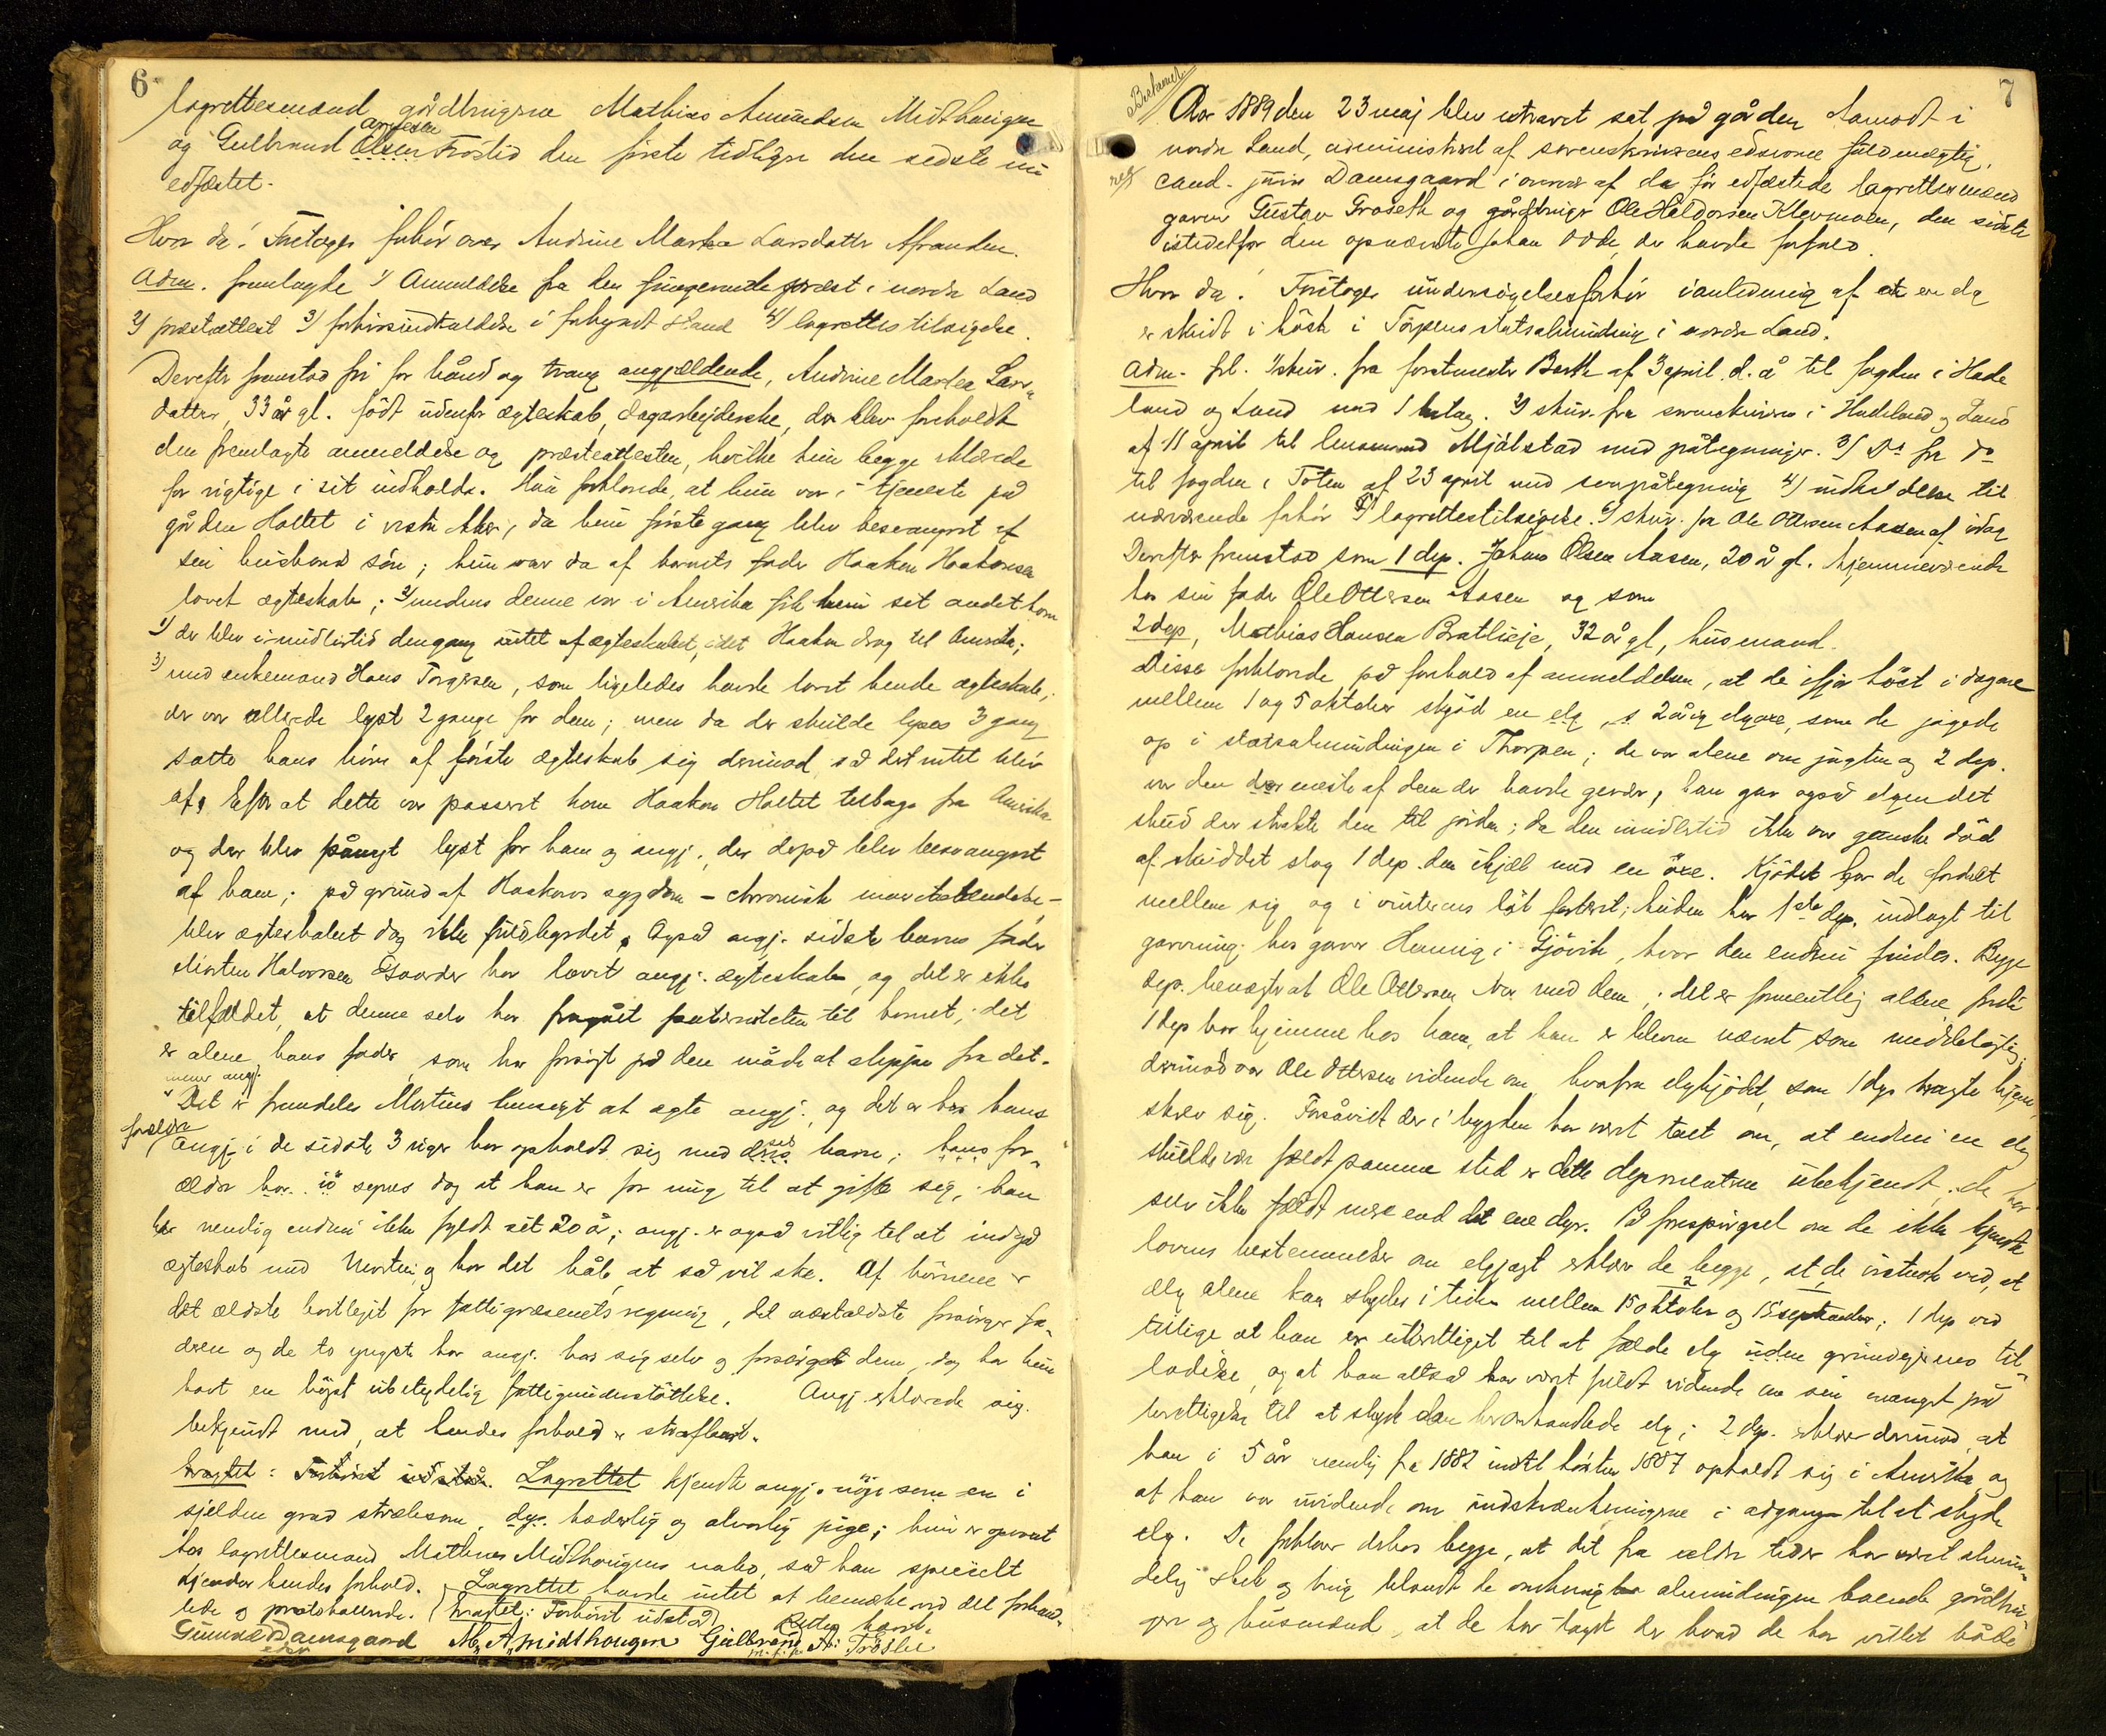 6
lagrettesmænd gårdbrugerne Mathias Amundsen Midthaugen
Arnesen
og Gulbrand Olsen Frøslid den første tidligre den sidste nu
edfæstet.
Hvor da! Foretoges forhør over Andrine Marthea Larsdatter Afranden.
Adm. fremlagde 1/ Anmeldelse fra den fungerende præst i nordre Land
2/ præstattest 3/ forhørsindkaldelse i forkyndt stand 4/ lagrettes tilsigelse.
Derefter fremstod fri for bånd og tvang angjældende, Andrine Marthea Lars-
datter, 33 år gl. født udenfor ægteskab, dagarbejderske, der blev foreholdt
den fremlagte anmeldelse og præsteattesten, hvilke hun begge erklærede
for rigtige i sit indhold. Hun forklarede, at hun var i tjeneste på
gården Holtet i vestre, da hun første gang blev besvangret af
sin husbonds søn; hun var da af barnets fader Haakon Haakonsen
lovet ægteskab; 2/ medens denne var i Amerika fik hun sit andet barn
1/ der blev imidlertid dengang intet af ægteskabet, idet Haakon drog til Amerika;
3/ med enkemand Hans Torgersen, som ligeledes havde lovet hende ægteskab;
der var allerede lyst 2 gange for dem; men da der skulde lyses 3 gang
satte hans børn af første ægteskab sig derimod, så det intet blev
af. Efter at dette var passeret kom Haakon Holtet tilbage fra Amerika
og der blev pånyt lyst for ham og angj., der derpå blev besvangret
af ham; på grund af Haakons sygdom – chronisk –
blev ægteskabet dog ikke fuldbyrdet. Også angj. sidste barns fader
Morten Halvorsen Gaarder har lovet angj. ægteskab, og det er ikke
tilfældet, at denne selv har fragået paterniteten til barnet; det
er alene hans fader, som har forsøgt på den måde at slippe fra det.
mener angj.
Det er fremdeles Mortens hensigt at ægte angj., og det er hos hans
forældre
angj. i de sidste 3 uger har opholdt sig med sit barn; hans for-
ældre synes dog at han er for ung til at gifte sig, han
har nemlig endnu ikke fyldt sit 20 år; angj. er også villig til at indgå
ægteskab med Morten, og har det håb, at så vil ske. Af børnene er
det ældste bortlejet for fattigvæsenets regning, det næstældste forsørger fa-
deren og de to yngste har angj. hos sig selv og forsørget dem, dog har hun
havt en højst ubetydelig fattigunderstøttelse. Angj. erklærede sig
bekjendt med, at hendes forhold er strafbart.
Eragtet: Forhøret udstår. Lagrettet kjendte angj. nøje som en i
sjelden grad stræbsom, hæderlig og alvorlig pige; hun er opvoxet
hos lagrettesmand Mathias Midthaugens nabo, så han specielt
kjender hendes forhold. Lagrettet havde intet at bemærke ved det forhand-
lede og protokollerede. Eragtet: Forhøret udstår Retten hævet.
Gunnar Damsgaard M. A. Midthougen Gulbrand Ar. Frøslie
m. f. p.
7
Beslannet
Aar 1889 den 23 maj blev extraret sat på gården Aamodt i
nordre Land, administreret af sorenskriverens edsvorne fuldmægtig,
cand. juris Damsgaard i overvær af de før edfæstede lagrettesmænd
garver Gustav Groseth og gårdbruger Ole Haldorsen Klevmoen, den sidste
istedetfor den opnævnte Johan Odde, der havde forfald.
Hvor da! Foretoges undersøgelsesforhør i anledning af at en elg
er skudt i høst i Torpens statsalmending i nordre Land.
Adm. frl. 1/ skriv. fra forstmester Barth af 3 april d. å. til fogden i Hade
land og Land med 1 bilag. 2/ skriv. fra sorenskriveren i Hadeland og Land
af 11 april til lensmand Mjølstad med påtegninger. 3/ Do fra do
til fogden i Toten af 23 april med svarpåtegning 4/ indkaldelse til
nærværende forhør 5/ lagrettestilsigelse. 6/ skriv. fra Ole Ottersen Aasen af idag
Derefter fremstod som 1 dep. Johan Olsen Aasen, 20 år gl. hjemmeværende
hos sin fader Ole Ottersen Aasen og som
2 dep, Mathias Hansen Bratlieje, 32 år gl, husmand.
Disse forklarede på forehold af anmeldelsen, at de ifjor høst i dagene
mellem 1 og 5 oktober skjød en elg, 2 årig elgoxe, som de jagede
op i statsalmendingen i Thorpen; de var alene om jagten og 2 dep.
var den der eneste af dem der havde gevær, han gav også elgen det
skud der strakte den til jorden; da den imidlertid ikke var ganske død
af skuddet slog 1 dep. den ihjæl med en øxe. Kjødet har de fordelt
mellem sig og i vinterens løb fortæret; huden har 1ste dep. indlagt til
garvning hos garver Hennig i Gjøvik, hvor den endnu findes. Begge
dep. benægter at Ole Ottersen var med dem; det er formentlig alene, fordi
1 dep bor hjemme hos ham, at han er bleven nævnt som meddelagtig;
derimod var Ole Ottersen vidende om, hvorfra elgkjødet, som 1 dep bragte hjem,
skrev sig. Forsåvidt der i bygden har været talt om, at endnu en elg
skulde være fældt samme sted er dette deponenterne ubekjendt; de har
selv ikke fældt mere end det ene dyr. På forespørgsel om de ikke kjendte
lovens bestemmelser om elgjagt erklær de begge, at de vistnok ved, at
elg alene kan skydes i tiden mellem 15 oktober og 15 september; 1 dep ved
tillige at han er uberettiget til at fælde elg uden grundejerens til-
ladelse, og at han altså har været fuldt vidende om sin mangel på
berettigelse til at skyde den heromhandlede elg; 2 dep. erklær derimod, at
han i 5 år nemlig fra 1882 indtil høsten 1887 opholdt sig i Amerika, og
at han var uvidende om indskrænkningerne i adgangen til at skyde
elg. De forklarer derhos begge, at det fra ældre tider har været almin-
delig skik og brug blandt de omkring almendingen boende gårdbru-
gere og husmænd, at de har tagt der hvad de har villet både